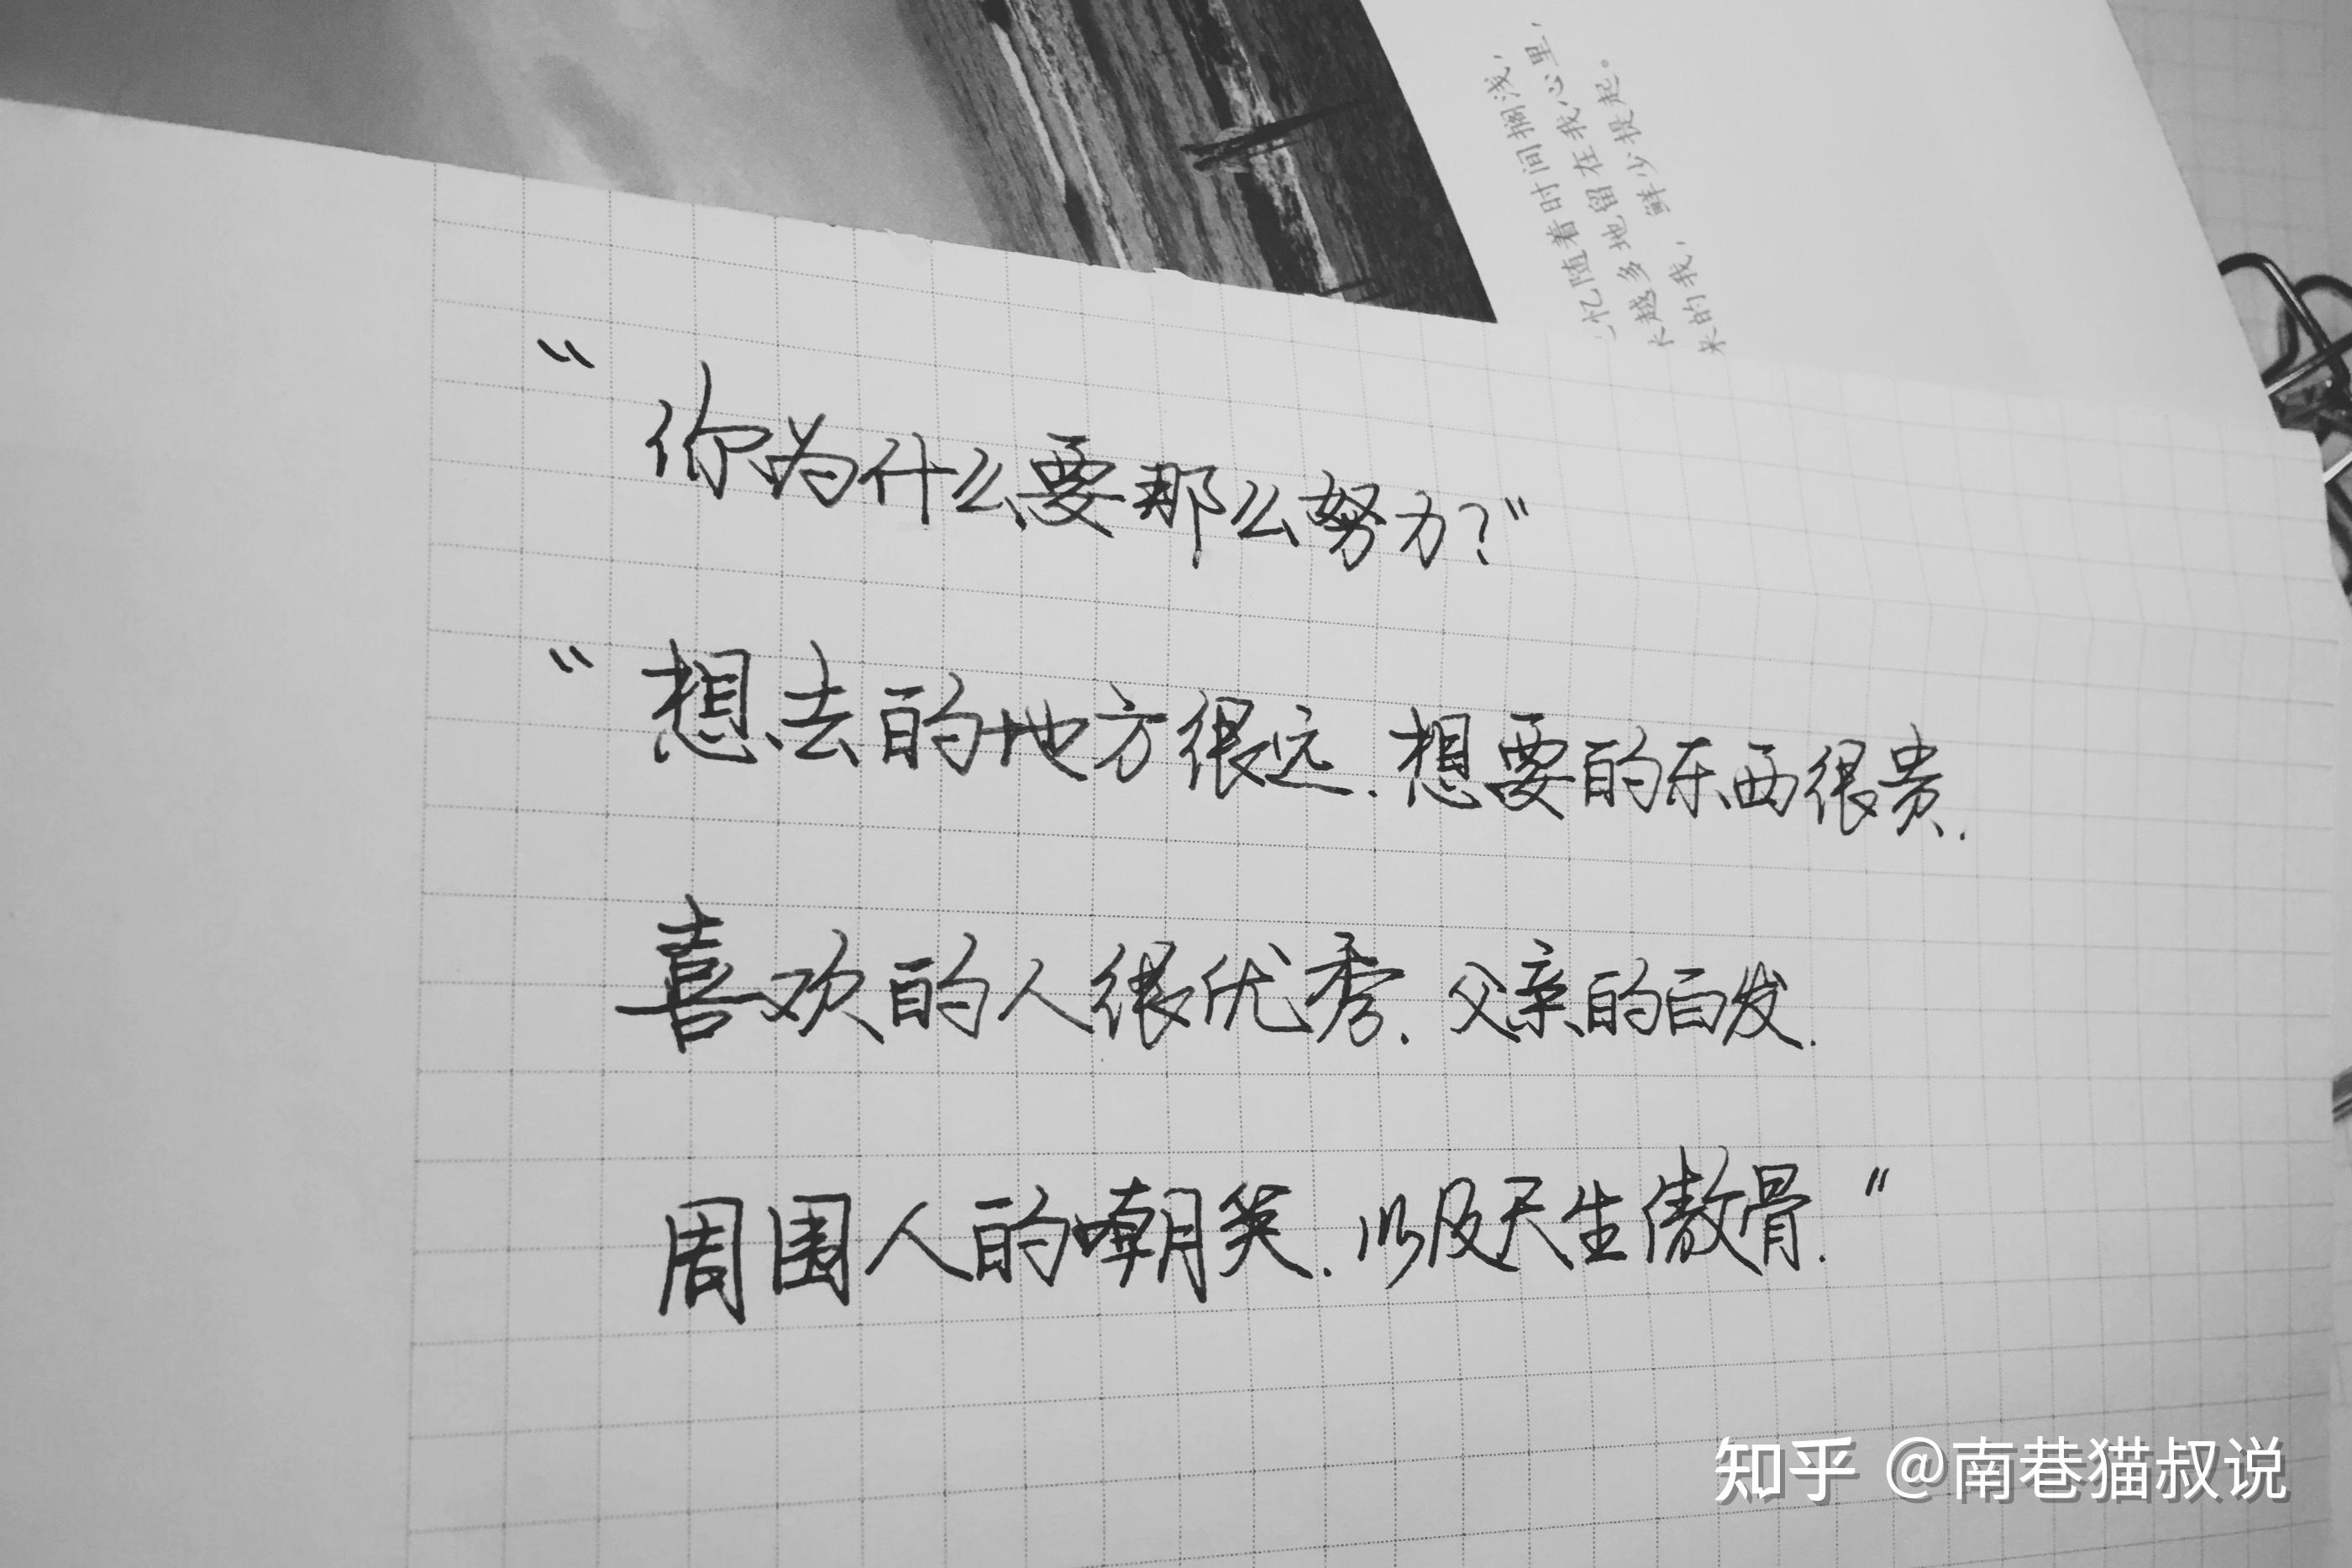 忆随着时间搁浅，
越多地留在我心里，
来的我，鲜少提起。
“你为什么要那么努力？”
“想去的地方很远.想要的东西很贵.
喜欢的人很优秀.父亲的白发.
周围人的嘲笑.以及天生傲骨.”
知乎 @南巷猫叔说